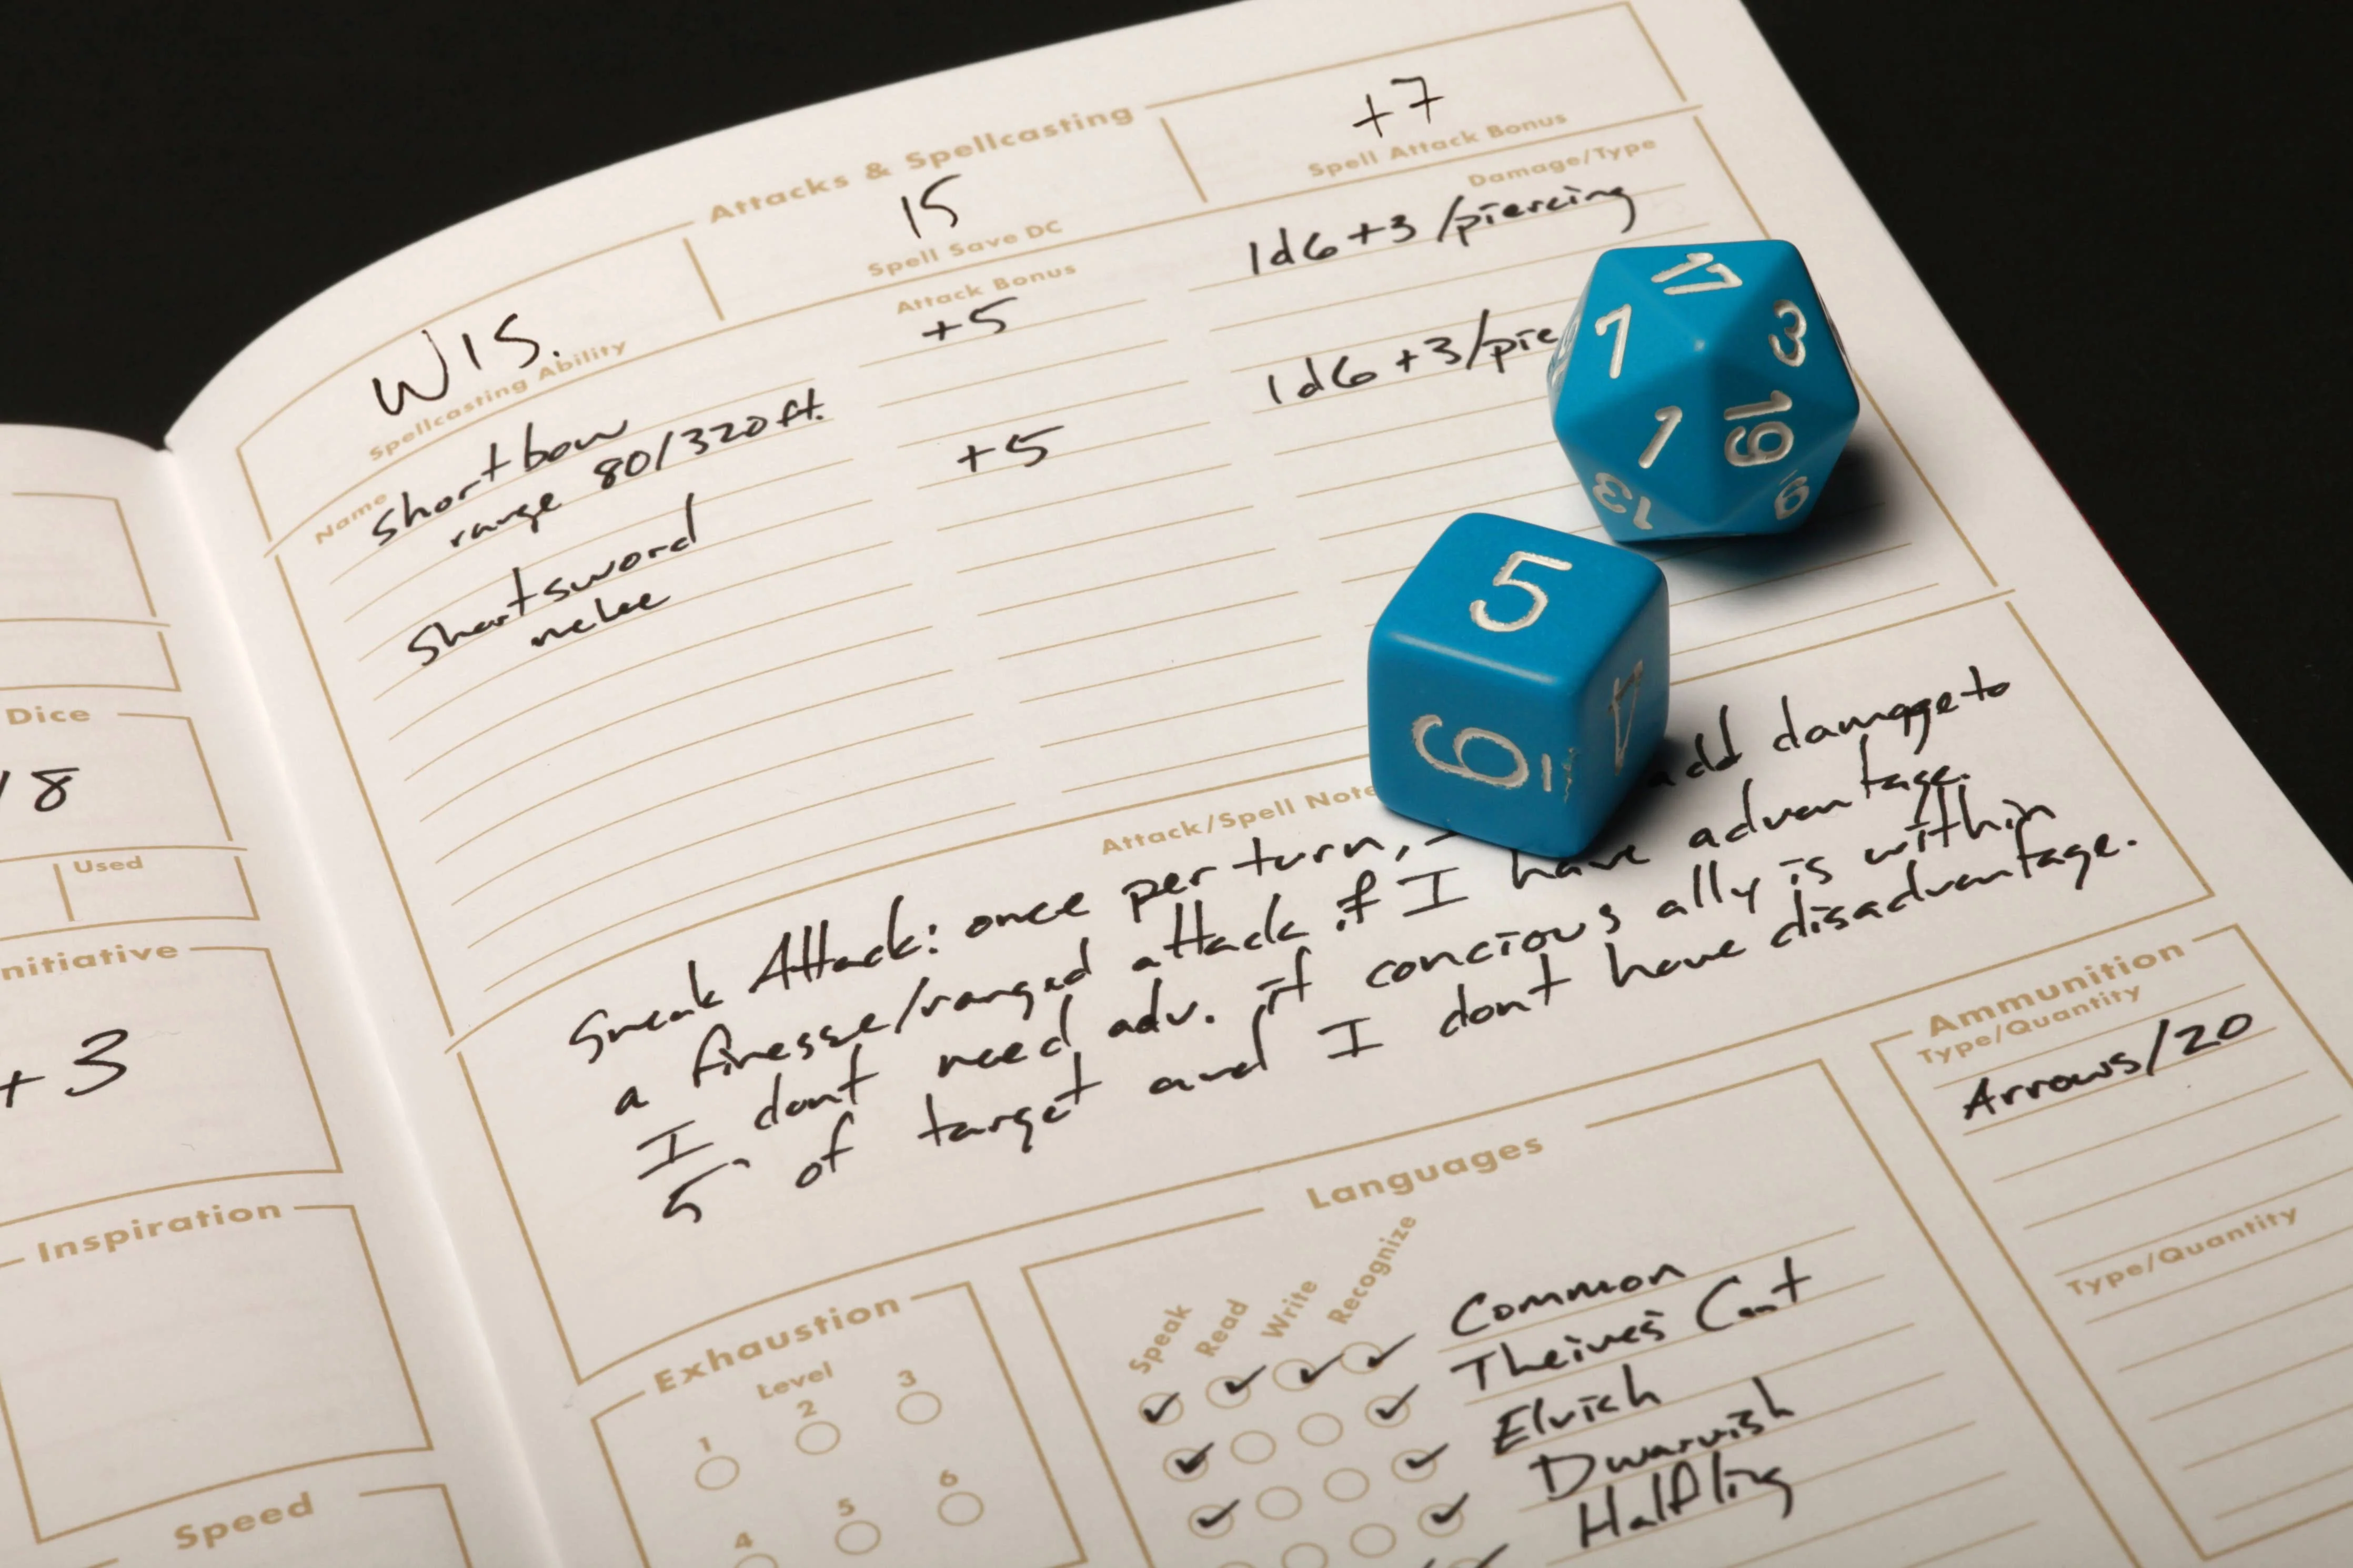 Attacks & Spellcasting
WIS.
Spellcasting Ability
15
Spell Save DC
+7
Spell Attack Bonus
Name
Attack Bonus
Damage/Type
Shortbow +5 1d6 +3 /piercing
range 80/320 ft.
Shortsword +5 1d6 +3/pie
melee
17
7
3
1
19
13
9
5
6
4
Attack/Spell Note
Sneak Attack: once per turn, add damage to
a finesse/ranged attack if I have advantage.
I dont need adv. if concious ally is within
5' of target and I dont have disadvantage.
Dice
18
Used
nitiative
+3
Inspiration
Speed
Exhaustion
Level
1 2 3
4 5 6
Languages
Speak Read Write Recognize
✓ ✓ ✓ ✓ Common
✓ ✓ Theives Cant
✓ ✓ Elvish
✓ Dwarvish
Halfling
Ammunition
Type/Quantity
Arrows/20
Type/Quantity